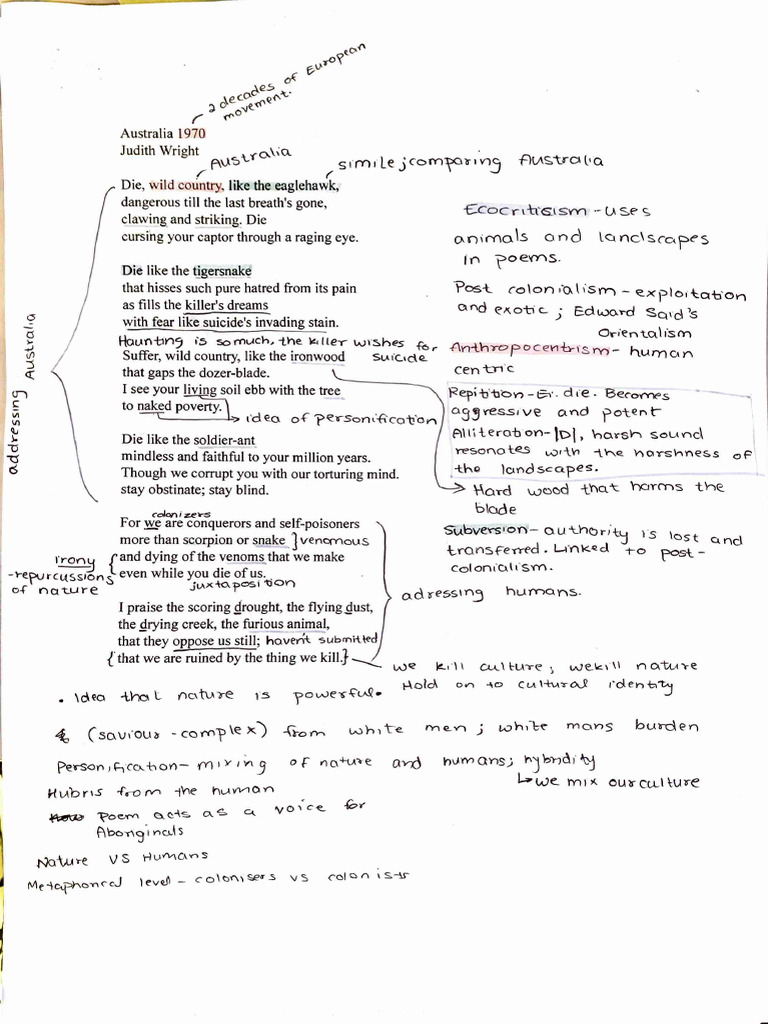 2 decades of European
movement.
Australia 1970
Judith Wright
Australia
simile; comparing Australia
Die, wild country, like the eaglehawk,
dangerous till the last breath's gone,
clawing and striking. Die
cursing your captor through a raging eye.
Ecocriticism - uses
animals and landscapes
in poems.
Die like the tigersnake
that hisses such pure hatred from its pain
as fills the killer's dreams
with fear like suicide's invading stain.
Post colonialism - exploitation
and exotic; Edward Said's
Orientalism
Haunting is so much, the killer wishes for
suicide
Anthropocentrism - human
centric
addressing Australia
Suffer, wild country, like the ironwood
that gaps the dozer-blade.
I see your living soil ebb with the tree
to naked poverty.
idea of personification
Repitition - Er. die. Becomes
aggressive and potent
Alliteration - |D|, harsh sound
resonates with the harshness of
the landscapes.
Hard wood that harms the
blade
Die like the soldier-ant
mindless and faithful to your million years.
Though we corrupt you with our torturing mind.
stay obstinate; stay blind.
Subversion - authority is lost and
transferred. Linked to post-
colonialism.
colonizers
For we are conquerors and self-poisoners
more than scorpion or snake } venomous
and dying of the venoms that we make
even while you die of us.
irony
-repurcussions
of nature
juxtaposition
adressing humans.
I praise the scoring drought, the flying dust,
the drying creek, the furious animal,
that they oppose us still; haven't submitted
{ that we are ruined by the thing we kill.}
we kill culture; we kill nature
Hold on to cultural identity
• Idea that nature is powerful•
(saviour-complex) from white men; white mans burden
Personification - mixing of nature and humans; hybridity
↳ we mix our culture
Hubris from the human
Poem acts as a voice for
Aboriginals
Nature VS Humans
Metaphorical level - colonisers vs colonists